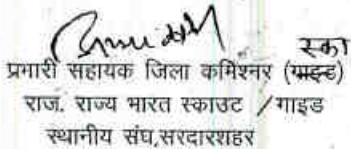 स्का
प्रभारी सहायक जिला कमिश्नर (गाइड)
राज. राज्य भारत स्काउट / गाइड
स्थानीय संघ,सरदारशहर